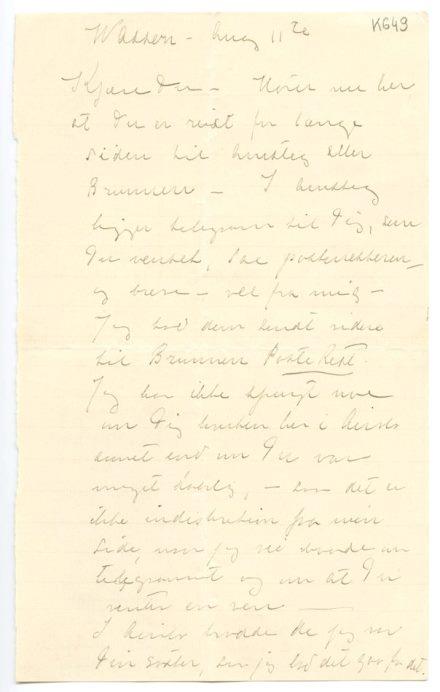 Wassen – Aug 11te
K649
Kjære Du – Hører nu her
at Du er reist for længe
siden til Amsteg eller
Brunnen – I Amsteg
ligger telegram til Dig, som
Du ventet, sae postmesteren –
og breve – vel fra mig –
Jeg bød dem sendt videre
til Brunnen Poste Rest.
Jeg har ikke spurgt noe
om Dig hverken her i
annet end om Du var
meget daarlig, – saa det er
ikke indiskretion fra min
side, naar jeg vet om
telegrammet og om at Du
venter en ven —
I trodde de jeg var
Din søster, saa jeg lod det gaa for det.